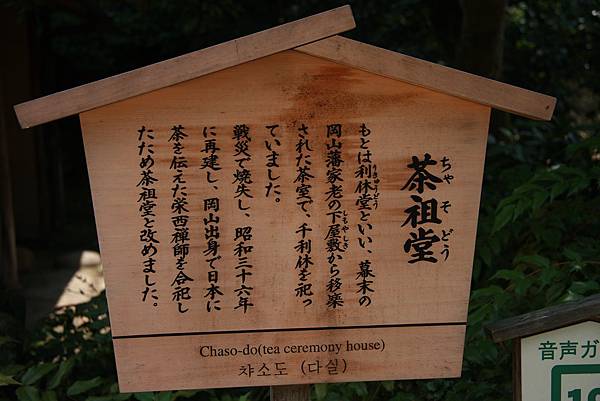 茶祖堂
ちゃそどう
もとは利休堂といい、幕末の
りきゅうどう
岡山藩家老の下屋敷から移築
しもやしき
された茶室で、千利休を祀っ
ていました。
戦災で焼失し、昭和三十六年
に再建し、岡山出身で日本に
茶を伝えた栄西禅師を合祀し
たため茶祖堂と改めました。
Chaso-do(tea ceremony house)
챠소도 (다실)
音声ガ